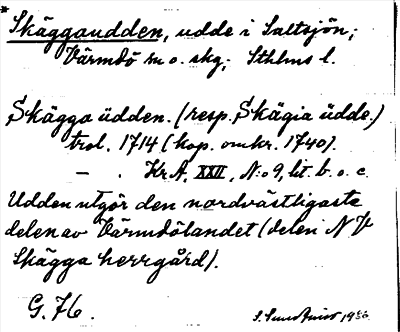 * Skäggaudden, udde i Saltsjön;
Värmdö sn o. skg; Sthlms l.
Skägga üdden. (resp. Skägia üdde.)
trol. 1714 (kop. omkr. 1740).
— . Kr.A. XXII, N:o 9, lit. b. o. c.
Udden utgör den nordvästligaste
delen av Värmdölandet (delen N V
Skägga herrgård).
G. 76.
1936